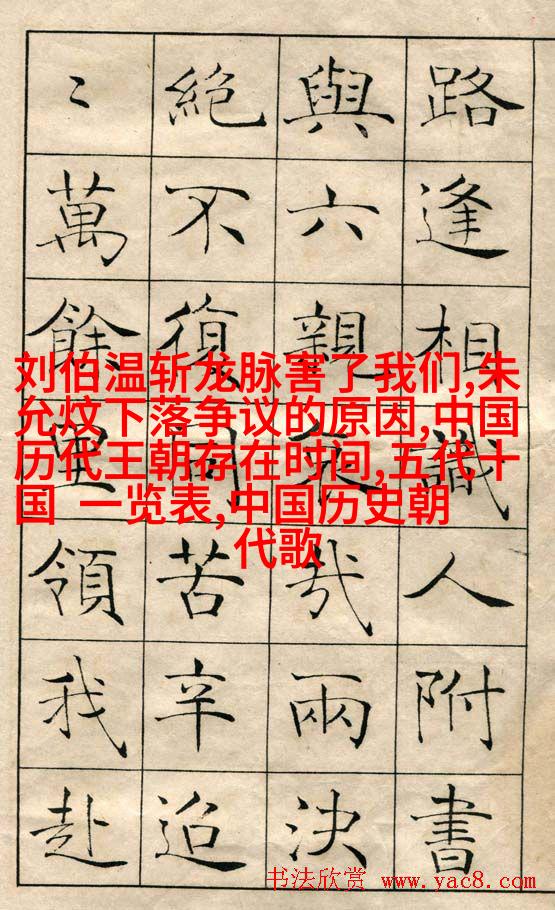 路逢相識人附書
與六親哀哉兩決
絕不復同苦辛迢
〻萬餘里領我赴
刘伯温斩龙脉害了我们,朱
允炆下落争议的原因,中国
历代王朝存在时间,五代十
国 一览表,中国历史朝
代歌
书法欣赏 www.yac8.com